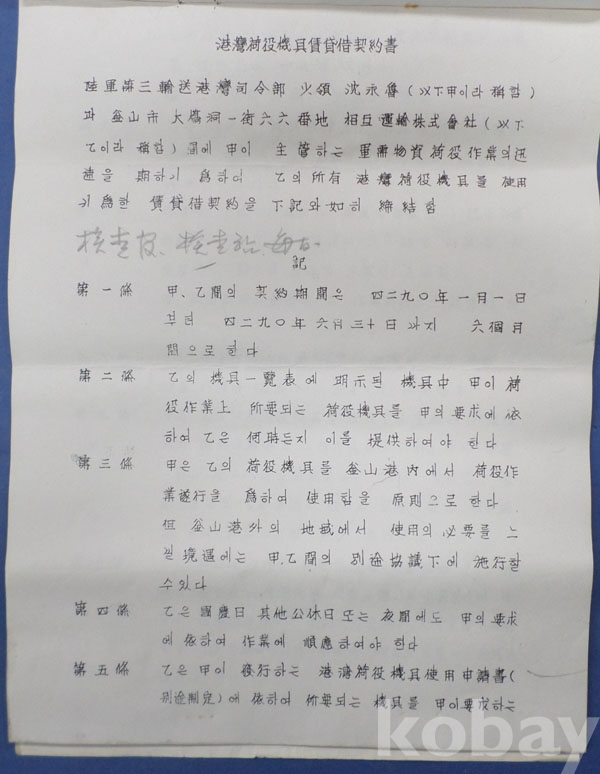 港灣荷役機具賃貸借契約書
陸軍第三輸送港灣司令部 少領 沈永魯(以下甲이라 稱함)
과 釜山市 大橋洞一街六六番地 相互運輸株式會社(以下
乙이라 稱함)間에 甲이 主管하는 軍需物資荷役作業의迅
速을 期하기 爲하여 乙의所有 港灣荷役機具를 使用
키爲한 賃貸借契約을 下記와如히 締結함
記
第一條 甲、乙間의 契約期間은 四二九〇年一月一日
부터 四二九〇年六月三十日까지 六個月
間으로한다
第二條 乙의 機具一覽表에 明示된 機具中 甲이 荷
役作業上 所要되는 荷役機具를 甲의要求에依
하여 乙은 何時든지 이를 提供하여야 한다
第三條 甲은 乙의 荷役機具를 釜山港內에서 荷役作
業遂行을 爲하여 使用함을 原則으로한다
但 釜山港外의 地域에서 使用의必要를 느
낄境遇에는 甲、乙間의 別途協議下에 施行할
수있다
第四條 乙은 國慶日 其他公休日또는 夜間에도 甲의要求
에依하여 作業에 順應하여야 한다
第五條 乙은 甲이 發行하는 港灣荷役機具使用申請書(
別途制定)에依하여 所要되는 機具를 甲이要求하는
kobay